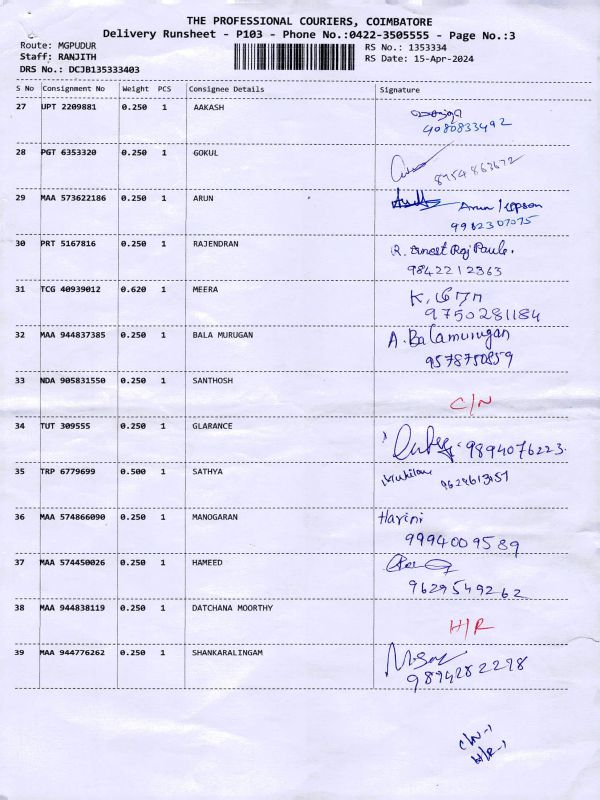 THE PROFESSIONAL COURIERS, COIMBATORE
Delivery Runsheet - P103 - Phone No.:0422-3505555 - Page No.:3
Route: MGPUDUR RS No.: 1353334
Staff: RANJITH RS Date: 15-Apr-2024
DRS No.: DCJB135333403
S No Consignment No Weight PCS Consignee Details Signature
27 UPT 2209881 0.250 1 AAKASH
4080833492
28 PGT 6353320 0.250 1 GOKUL
8754863672
29 MAA 573622186 0.250 1 ARUN Arun
9982307075
30 PRT 5167816 0.250 1 RAJENDRAN R. Ernest Raj Paule.
9842212363
31 TCG 40939012 0.620 1 MEERA K. மீரா
9750281184
32 MAA 944837385 0.250 1 BALA MURUGAN A. Balamurugan
9578750859
33 NDA 905831550 0.250 1 SANTHOSH
C/N
34 TUT 309555 0.250 1 GLARANCE
9894076223
35 TRP 6779699 0.500 1 SATHYA Mukilan
36 MAA 574866090 0.250 1 MANOGARAN Harini
9994009589
37 MAA 574450026 0.250 1 HAMEED
9629549262
38 MAA 944838119 0.250 1 DATCHANA MOORTHY
H/R
39 MAA 944776262 0.250 1 SHANKARALINGAM
9894282278
C/N-1
H/R-1